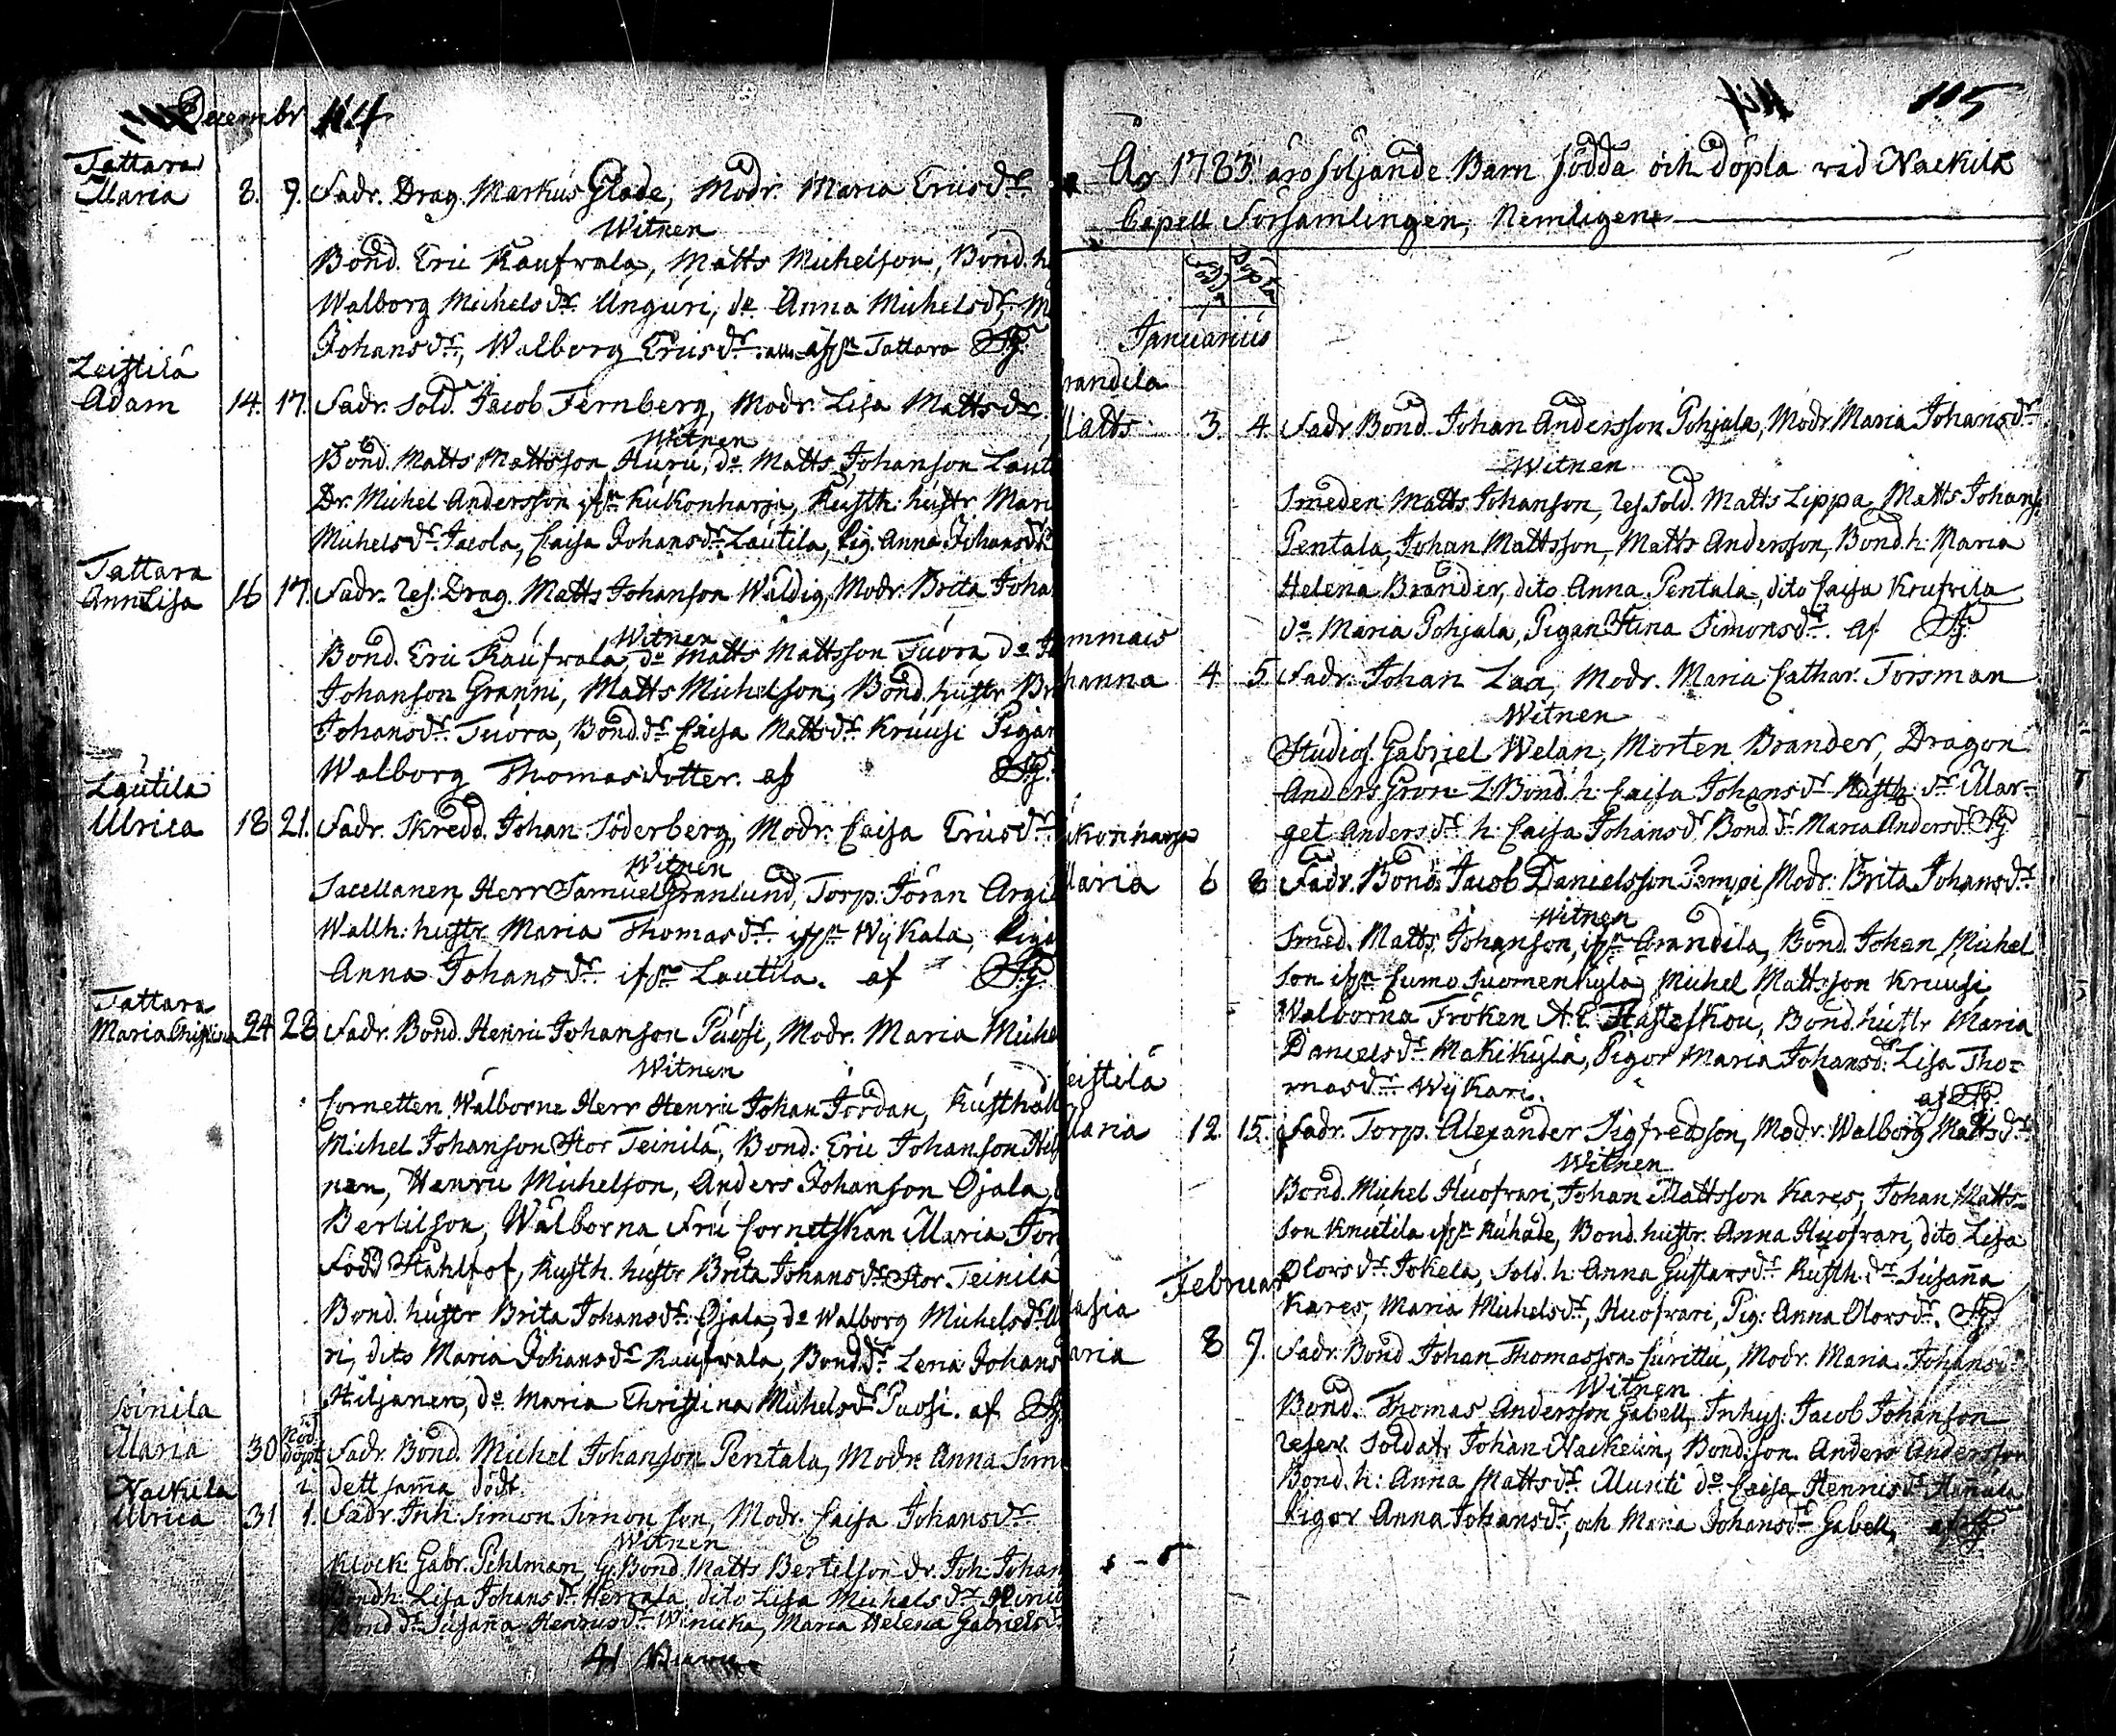 Decembr 114
Tattara
Maria 8. 9. Fadr. Drag. Markus Glade, Modr. Maria Ericsdr.
Witnen
Bond. Eric Kaufvala, Matts Michelson, Bond. h
Walborg Michelsdr. Unguri, do Anna Michelsdr. M
Johansdr., Walborg Ericsdr. Tattara
Leistilä
Adam 14. 17. Fadr. Sold. Jacob Fernberg, Modr. Lisa Mattsdr.
Witnen
Bond. Matts Mattsson Huru, do Matts Johanson Lauti
Dr. Michel Andersson ifrån Kukonharja, Rusth. hustr. Mari
Michelsdr. Jacola, Caisa Johansdr. Lautila, Pig. Anna Johansdr.
Tattara
AnnLisa 16 17. Fadr. Res. Drag. Matts Johanson Wäldig, Modr. Brita Joha
Witnen
Bond. Eric Kaufvala, do Matts Mattsson Tuora do
Johanson Granni, Matts Michelson, Bond. hustr. Br
Johansdr. Tuora, Bond. dr. Caisa Mattsdr. Kruusi Pigan
Walborg Thomasdotter. af
Lautila
Ulrica 18 21. Fadr. Skredd. Johan Söderberg, Modr. Caisa Ericsdr.
Witnen
Sacellanen Herr Samuel Granlund, Torp. Jöran Argi
Wallh. hustr. Maria Thomasdr. ifrån Wijkala, Piga
Anna Johansdr. ifrån Lautila. af
Tattara
Maria Christina 24 26 Fadr. Bond. Henric Johanson Puosi, Modr. Maria Miche
Witnen
Cornetten Wälborne Herr Henric Johan Jordan, Rusthåll
Michel Johanson Stor Teinilä, Bond. Eric Johanson Hil
nen, Henric Michelson, Anders Johanson Ojala,
Bertilson, Wälborna Fru Cornetskan Maria Jor
Född Stahlhof, Rusth. hustr. Brita Johansdr. Stor Teinilä
Bond. hustr. Brita Johansdr. Ojala, do Walborg Michelsdr. U
ri, dito Maria Johansdr. Kaufvala, Bond. dr. Lena Johans
Hiljanen, do Maria Christina Michelsdr. Puosi. af
Soinila
Maria 30 Nöd döpt Fadr. Bond. Michel Johanson Pentala, Modr. Anna Sim
dett samma dödt.
Nackila
Ulrica 31 1. Fadr. Inh. Simon Simonson, Modr. Caisa Johansdr.
Witnen
Klock. Gabr. Pihlman, Bond. Matts Bertelson dr. Joh. Johan
Bond. h. Lisa Johansdr. dito Lisa Michelsdr.
Bond. dr. Susanna Henricsdr. Maria Helena Gabrielsdr.
41 Barn
115
År 1783 äro följande Barn födda och döpta wid Nackila
Capell Församlingen, Nemligen
Födda Döpta
Januarius
randila
Matts 3. 4. Fadr. Bond. Johan Andersson Pohjala, Modr. Maria Johansdr.
Witnen
Smeden Matts Johanson, Res. Sold. Matts Lippa, Matts Johans.
Pentala, Johan Mattsson, Matts Andersson, Bond. h. Maria
Helena Brander, dito Anna Pentala, dito Caisa Krufvila
do Maria Pohjala, Pigan Stina Simonsdr. af
mmais
hanna 4 5. Fadr. Johan Laa, Modr. Maria Cathar. Forsman
Witnen
Studios. Gabriel Welan, Morten Brander, Dragon
Anders Grön L. Bond. h. Caisa Johansdr. Rusth. dr. Mar-
get Andersdr. h. Caisa Johansdr. Bond. dr. Maria Andersdr.
ukonharja
Maria 6 8 Fadr. Bond. Jacob Danielsson Pemppi Modr. Brita Johansdr.
Witnen
Smed. Matts Johanson, ifrån Arandila, Bond. Johan Michel
son ifrån Cumo Suomenkylä, Michel Mattsson Kruusi
Walborna Fröken A. C. Hästesko, Bond. hustr. Maria
Danielsdr. Mäkikylä, Pigor Maria Johansd. Lisa Tho-
masdr. Wijkari.
af
eistilä
Maria 12. 15. Fadr. Torp. Alexander Sigfredsson, Modr. Walborg Mattsdr.
Witnen
Bond. Michel Huofvari, Johan Mattsson Kares, Johan Matts-
son Knutila ifrån Ruhade, Bond. hustr. Anna Huofvari, dito Lisa
Olofsdr. Jokela, Sold. h. Anna Gustafsdr. Rusth. dr. Susanna
Kares, Maria Michelsdr., Huofvari, Pig. Anna Olofsdr.
Februar
asia
aria 8 9. Fadr. Bond Johan Thomasson Curittu, Modr. Maria Johansd
Witnen
Bond. Thomas Andersson Gabell, Inhys. Jacob Johanson
Reserv. Soldat Johan Nackelin, Bond. son. Anders Andersson
Bond. h. Anna Mattsdr. Muuti do Caisa Henricsdr. Hannula
Pigor Anna Johansdr. och Maria Johansdr. Gabell, af